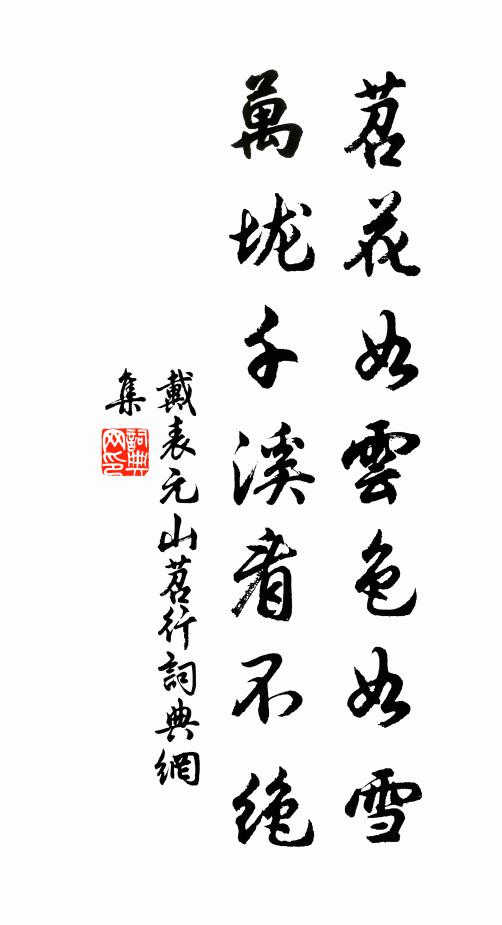 苕花如雲色如雪
萬垅千溪看不绝
戴表元山苕行詞典網
集
詞典
网印